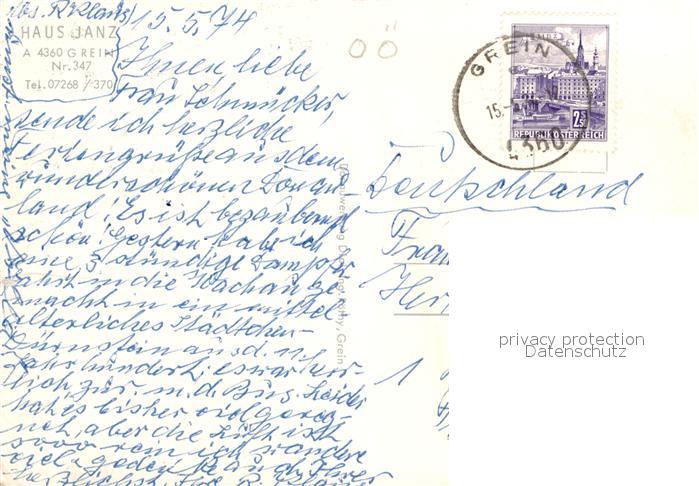 HAUS JANZ
A 4360 GREIN
Nr.347
Tel.07268 / 370
15.5.74
Ihnen, liebe
Frau Schmücker,
sende ich herzliche
Feriengrüße aus dem
wunderschönen Donau-
land! Es ist bezaubernd
schön! Gestern habe ich
eine 3 stündige Dampfer
fahrt in die Wachau ge
macht in ein mittel
alterliches Städtchen
Dürnstein aus d. 11.
Jahrhundert: es war herr-
lich, zur. m. d. Bus. Leider
hat es bisher viel gereg-
net, aber die Luft ist
sooo rein, ich wandre
viel
herzlichst Ihre R.
OÖ
GREIN
15.
4360
2.50
REPUBLIK ÖSTERREICH
Deutschland
Frau
Her
1
Grein
privacy protection
Datenschutz